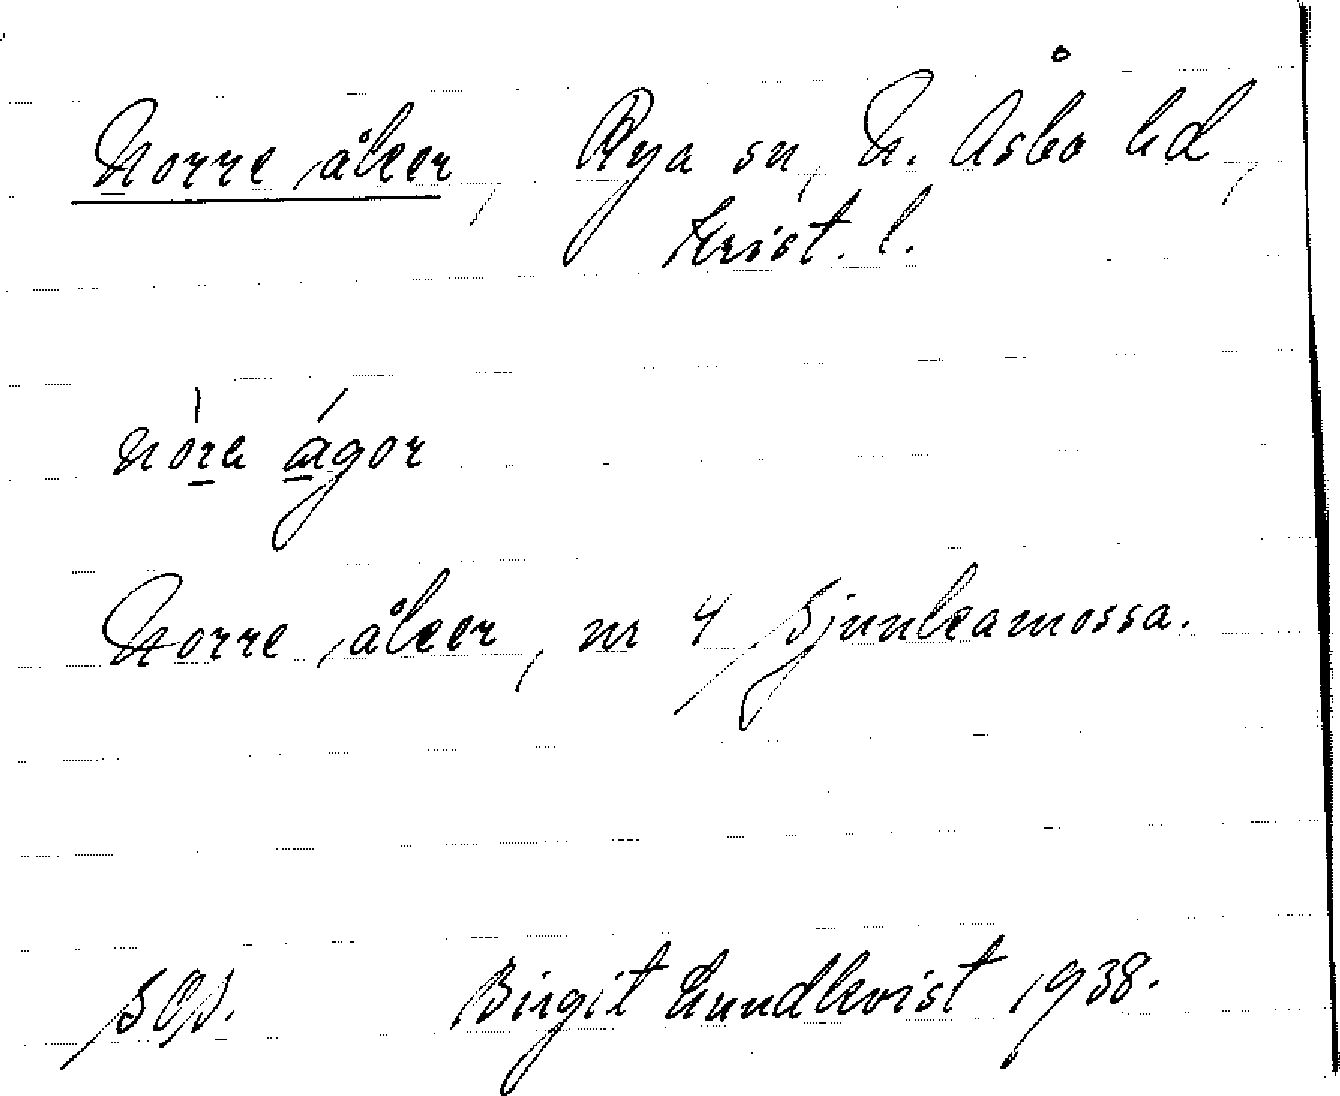 Norre åker, Rya sn, N. Åsbo hd,
Krist. l.
nóra ágor
Norre åker, nr 4 Sjunkamossa.
Birgit Lundkvist 1938.